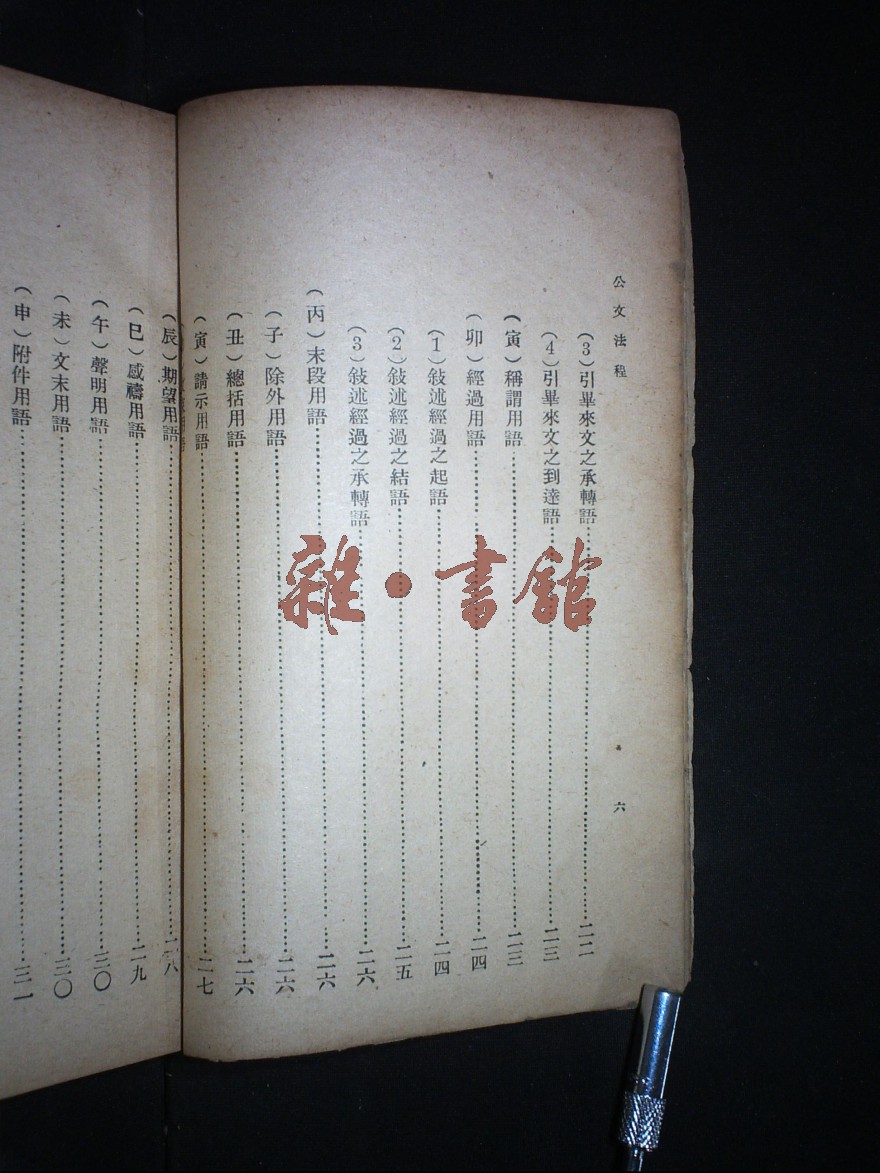 公文法程
六
(3)引畢來文之承轉語……二二
(4)引畢來文之到達語……二三
(寅)稱謂用語……二三
(卯)經過用語……二四
(1)敍述經過之起語……二四
(2)敍述經過之結語……二五
(3)敍述經過之承轉語……二六
(丙)末段用語……二六
(子)除外用語……二六
(丑)總括用語……二六
(寅)請示用語……二七
(辰)期望用語……二八
(巳)感禱用語……二九
(午)聲明用語……三〇
(未)文末用語……三〇
(申)附件用語……三一
雜·書館